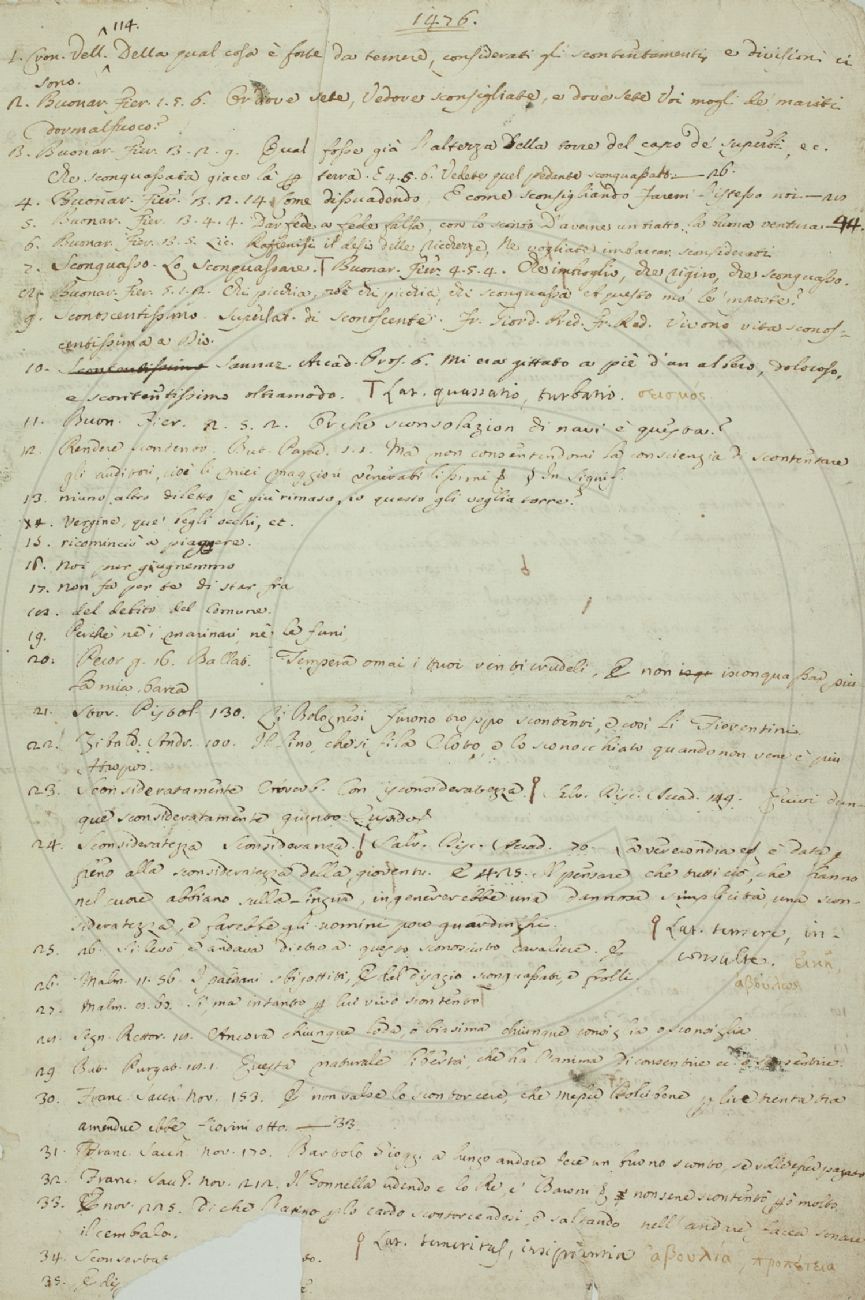 1476.
114.
1. Cron. Vell. Della qual cosa è forte da temere, considerati gli scontentamenti, e divisioni ci
sono.
2. Buonar. Fier. 1. 5. 6. Or dove sete, Vedove sconsigliate, e dove sete Voi mogli de' mariti
dormalfuoco?
3. Buonar. Fier. 3. 2. 9. Qual fosse già l'altezza della torre del capo de' superbi, ec.
Che sconquassata giace là terra. E 4. 5. 6. Vedete quel pedante sconquassato. — 26.
4. Buonar. Fier. 3. 2. 14. Come dissuadendo, E come sconsigliando farem l'istesso noi. — 20
5. Buonar. Fier. 3. 4. 4. Dar fede a fede falsa, con lo sconto D'averne un tratto la buona ventura.
6. Buonar. Fier. 3. 5. Lic. il desio delle ricchezze, Ne vogliate imbarcar sconsiderati
7. Sconquasso. Lo Sconquassare. Buonar. Fier. 4. 5. 4. Che imbroglio, che rigiro, che sconquasso.
8. Buonar. Fier. 5. Chi picchia, olà chi picchia, chi sconquassa a questo mo' le imposte?
9. Sconoscentissimo. Superlat. di Sconoscente. Fr. Giord. Pred. Fr. Red. Vivono vita sconos-
centissima a Dio.
10. Sannaz. Arcad. Pros. 6. Mi era gittato a piè d'un albero, doloroso,
e scontentissimo oltramodo. Lat. quassatio, turbatio. σεισμός
11. Buon. Fier. 2. 5. 2. Or che sconsolazion di navi è questa?
12. Rendere scontento. But. Parad. 1. 1. Ma non consentendomi la conscienzia di scontentare
gli auditori, cioè li miei maggiori venerabilissimi In signif.
13. niuno altro diletto è più rimaso, io questo gli voglia torre?
14. Vergine, que' begli occhi, ec.
15. ricominciò a piagnere.
16. noi pur giugnemmo
17. non fa per te di star fra
18. del debito del Comune.
19. Perchè nè i marinari nè le funi
20. Pecor. g. 16. Ballat. Tempera omai i tuoi venti crudeli, E non isconquassar più
la mia barca
21. Stor. Pistol. 130. Li Bolognesi furono troppo scontenti, e così li Fiorentini.
22. Zibald. Andr. 100. Il lino, che si fila Cloto, e lo sconocchiato quando non vene è più
Atropos.
23. Sconsideratamente Avverb. Con isconsideratezza. Salv. Disc. Acad. 149. Fuvvi dun-
que sconsideratamente
24. Sconsideratezza Sconsideranza. Salv. Disc. Acad. 70. La verecondia è data
freno alla sconsideratezza della gioventù. E 425. Il pensare che tutti ciò, che hanno
nel cuore abbiano sulla lingua, ingenererebbe una dannosa simplicità, una scon-
sideratezza, e farebbe gli uomini poco guardinghi.
Lat. temere, in-
consulte. εἰκῆ,
ἀβούλως
25. ab. Si levò e andava dietro a questo sconosciuto cavaliere.
26. Malm. 11. 56. I paesani sbigottiti, E del disagio sconquassati, e frolli
27. Malm. Si ma intanto lui vivo scontento
28. Segn. Rettor. Ancora chiunque loda, o biasima chiunque consiglia o sconsiglia
29. But. Purgat. 18. 1. Questa naturale libertà, che ha l'anima di consentire ec. o sconsentire
30. Franc. Sacch. nov. 153. E non valse lo scontorcere, che
amendue ebbe fiorini otto. — 33.
31. Franc. Sacch. nov. 170. Bartolo Gioggi a lungo andare fece un buono sconto, se volle esser pagato
32. Franc. Sacch. nov. 212. Il Gonnella udendo e lo Re, e' Baroni non sene scontentò molto
33. E nov. 225. Di che l'asino lo cardo scontorcendosi, e saltando nell'andare, facea sonare
il cembalo.
Lat. temeritas, insipientia ἀβουλία, προπέτεια
34.
35.